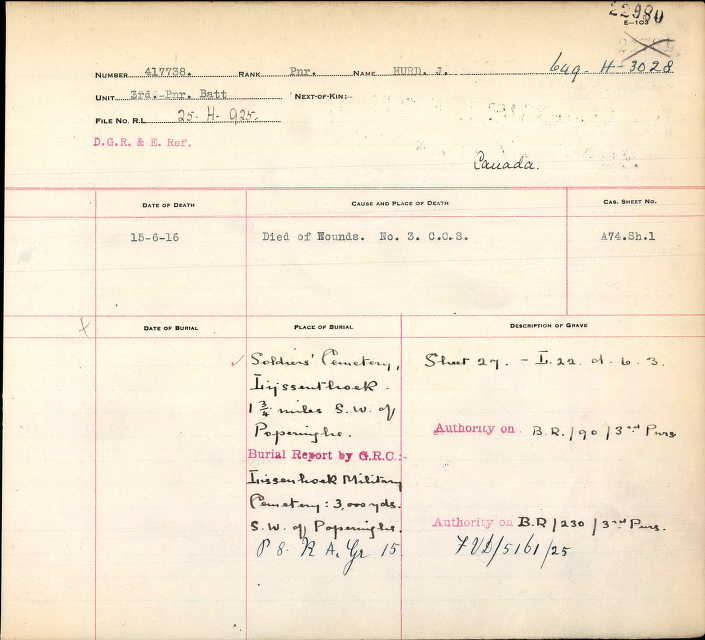 22980
E-103
NUMBER 417738. RANK Pnr. NAME HURD. J. 649-H-3028
UNIT 3rd. Pnr. Batt NEXT-OF-KIN:-
FILE NO. R.L. 25-H-925.
D.G.R. & E. Ref.
Canada.
DATE OF DEATH CAUSE AND PLACE OF DEATH CAS. SHEET NO.
15-6-16 Died of Wounds. No. 3. C.C.S. A74.Sh.1
DATE OF BURIAL PLACE OF BURIAL DESCRIPTION OF GRAVE
Soldiers' Cemetery, Sheet 27. - L.22. d. 6. 3.
Lijssenthoek.
1 3/4 miles S.W. of
Poperinghe. Authority on B.R./90/3rd Pnrs
Burial Report by G.R.C.:-
Lissenhoek Military
Cemetery: 3,000 yds.
S.W. of Poperinghe. Authority on B.R/230/3rd Pnrs.
P 8. R A. Gr 15. FVD/5161/25